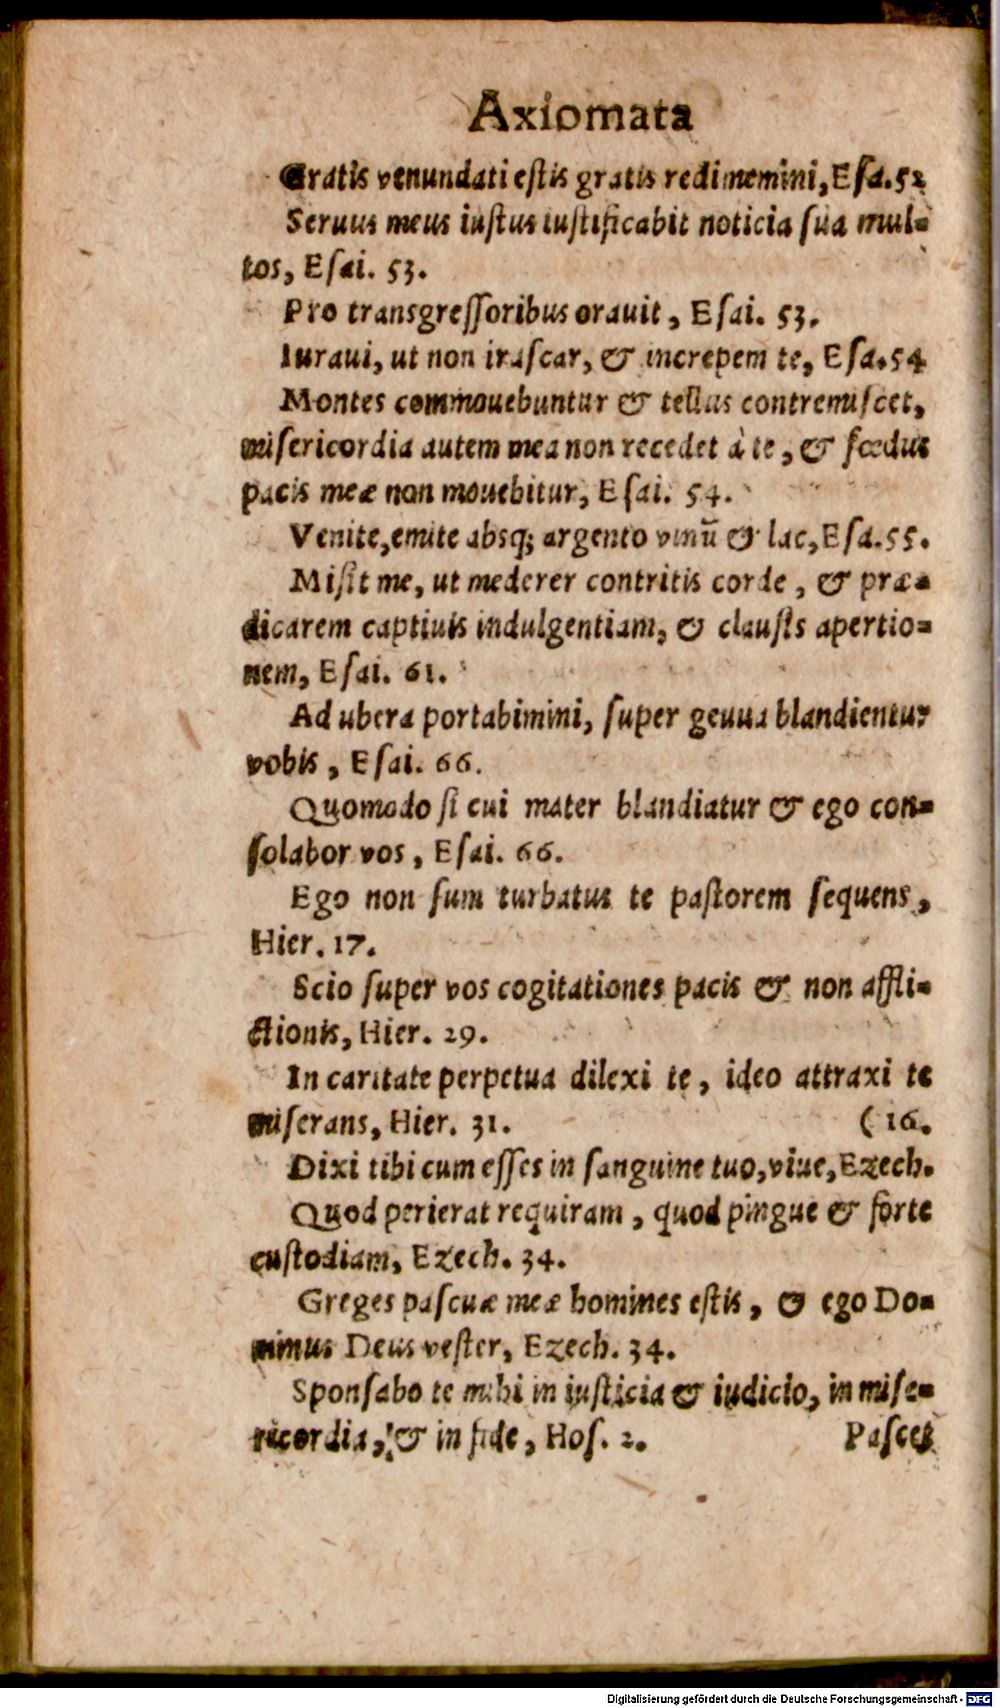 Axiomata
Gratis venundati estis gratis redimemini, Esa. 52
Seruus meus iustus iustificabit noticia sua mul-
tos, Esai. 53.
Pro transgressoribus orauit, Esai. 53.
Iuraui, ut non irascar, & increpem te, Esa. 54
Montes commouebuntur & tellus contremiscet,
misericordia autem mea non recedet à te, & fœdus
pacis meæ non mouebitur, Esai. 54.
Venite, emite absq; argento vinū & lac, Esa. 55.
Misit me, ut mederer contritis corde, & præ-
dicarem captiuis indulgentiam, & clausis apertio-
nem, Esai. 61.
Ad ubera portabimini, super geuua blandientur
vobis, Esai. 66.
Quomodo si cui mater blandiatur & ego con-
solabor vos, Esai. 66.
Ego non sum turbatus te pastorem sequens,
Hier. 17.
Scio super vos cogitationes pacis & non affli-
ctionis, Hier. 29.
In caritate perpetua dilexi te, ideo attraxi te
miserans, Hier. 31. (16.
Dixi tibi cum esses in sanguine tuo, viue, Ezech.
Quod perierat requiram, quod pingue & forte
custodiam, Ezech. 34.
Greges pascuæ meæ homines estis, & ego Do-
minus Deus vester, Ezech. 34.
Sponsabo te mihi in iusticia & iudicio, in mise-
ricordia, & in fide, Hos. 2. Pascet
Digitalisierung gefördert durch die Deutsche Forschungsgemeinschaft - DFG